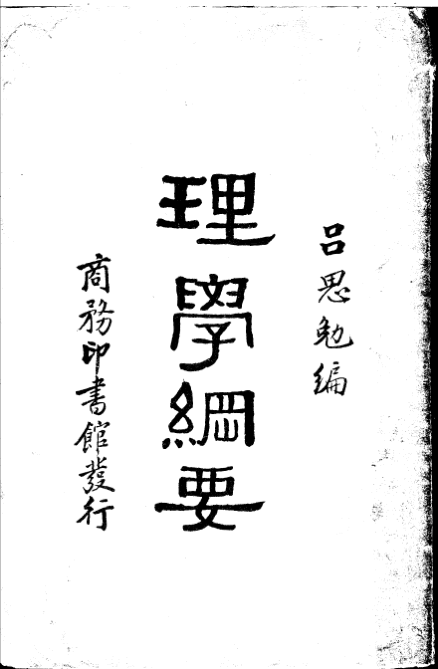 呂思勉編
理學綱要
商務印書館發行